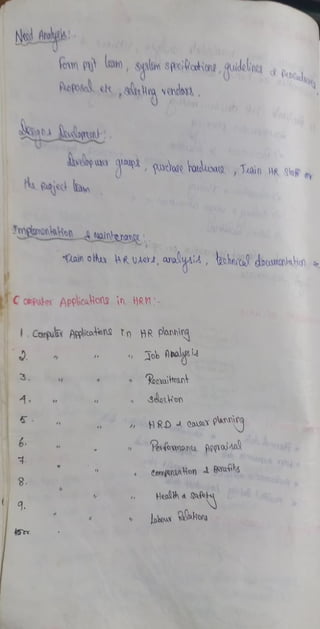 Need Analysis:-
Form pjt team, system specifications, guidelines & procedures,
Proposal etc, selecting vendors.
Design & Development:-
Develop user groups, purchase hardware, Train HR Staff or
the project team
Implementation & maintenance:
Train other HR users, analysis, technical documentation
Computer Applications in HRM:-
1. Computer Applications in HR planning
2. " " " Job Analysis
3. " " " Recruitment
4. " " " Selection
5. " " " HRD & career planning
6. " " " Performance Appraisal
7. " " " compensation & Benefits
8. " " " Health & safety
9. " " " Labour Relations